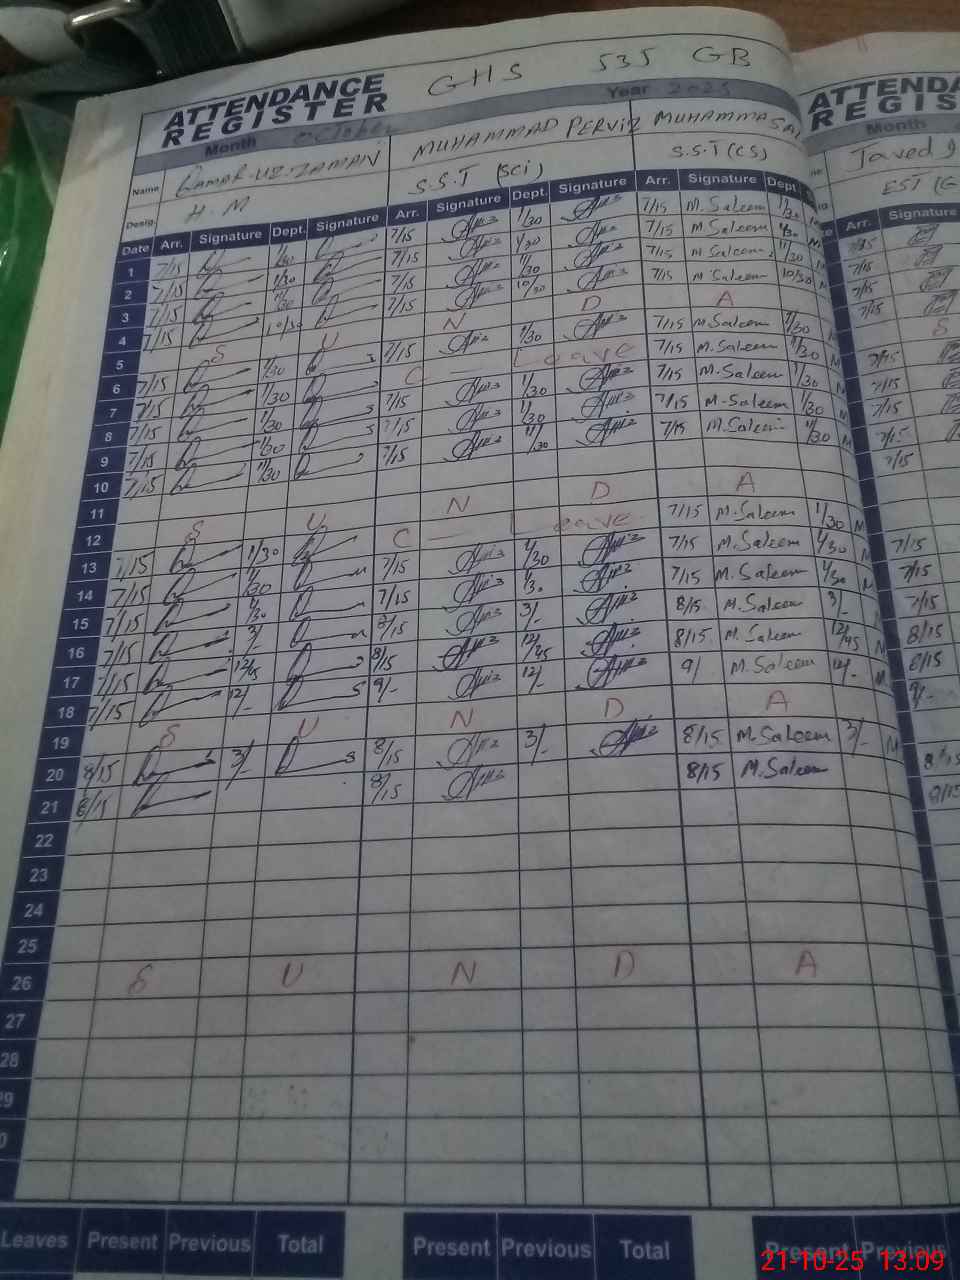 GHS 535 GB
ATTENDANCE REGISTER
Month October Year 2025
Name Qamar-uz-Zaman MUHAMMAD PERVIZ MUHAMMA
Desig. H.M S.S.T (Sci) S.S.T (CS)
Date Arr. Signature Dept. Signature Arr. Signature Dept. Signature Arr. Signature Dept.
1 7/15 1/30 7/15 1/30 7/15 M.Saleem 1/30
2 7/15 1/30 7/15 1/30 7/15 M.Saleem 1/30
3 7/15 1/30 7/15 11/30 7/15 M.Saleem 11/30
4 7/15 10/30 7/15 10/30 7/15 M.Saleem 10/30
5 S U N D A
6 7/15 1/30 7/15 1/30 7/15 M.Saleem 1/30
7 7/15 1/30 C — Leave 7/15 M.Saleem 1/30
8 7/15 1/30 7/15 1/30 7/15 M.Saleem 1/30
9 7/15 1/30 7/15 1/30 7/15 M.Saleem 1/30
10 7/15 11/30 7/15 11/30 7/15 M.Saleem 11/30
11
12 S U N D A
13 7/15 1/30 C — Leave 7/15 M.Saleem 1/30
14 7/15 1/30 7/15 1/30 7/15 M.Saleem 1/30
15 7/15 1/30 7/15 1/30 7/15 M.Saleem 1/30
16 7/15 3/- 8/15 3/- 8/15 M.Saleem 3/-
17 7/15 12/45 8/15 12/45 8/15 M.Saleem 12/45
18 7/15 12/- 9/- 12/- 9/ M.Saleem 12/-
19 S U N D A
20 8/15 3/- 8/15 3/- 8/15 M.Saleem 3/-
21 8/15 8/15 8/15 M.Saleem
22
23
24
25
26 S U N D A
27
28
29
Leaves Present Previous Total Present Previous Total Present Previous
ATTENDA
REGIS
Javed
EST
Arr. Signature
7/15
7/15
7/15
7/15
S
7/15
7/15
7/15
7/15
7/15
7/15
7/15
7/15
8/15
8/15
9/-
8/15
8/15
21-10-25 13:09